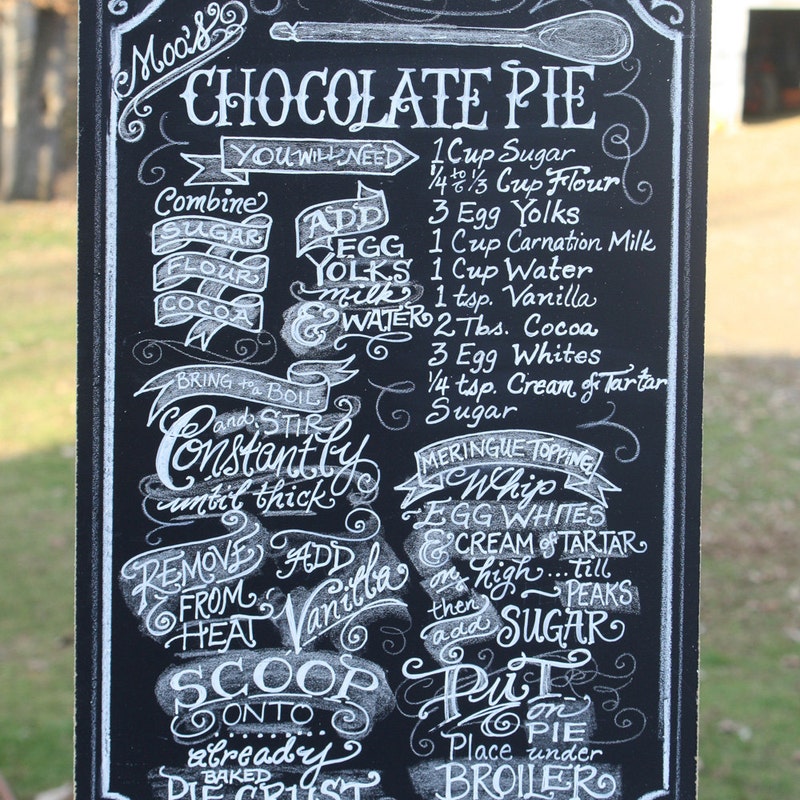 Moo's
CHOCOLATE PIE
YOU WILL NEED
1 Cup Sugar
1/4 to 1/3 Cup Flour
3 Egg Yolks
1 Cup Carnation Milk
1 Cup Water
1 tsp. Vanilla
2 Tbs. Cocoa
3 Egg Whites
1/4 tsp. Cream of Tartar
Sugar
Combine
SUGAR
FLOUR
COCOA
ADD
EGG
YOLKS
milk
& WATER
BRING to a BOIL
and STIR
Constantly
until thick
REMOVE
FROM
HEAT
ADD
Vanilla
SCOOP
ONTO
already
BAKED
PIE CRUST
MERINGUE TOPPING
Whip
EGG WHITES
& CREAM of TARTAR
on high... till
PEAKS
then
add SUGAR
Put
on
PIE
Place under
BROILER